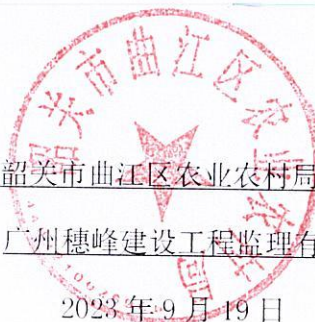 韶关市曲江区农业农村局
韶关市曲江区农业农村局
广州穗峰建设工程监理有
2023 年 9 月 19 日